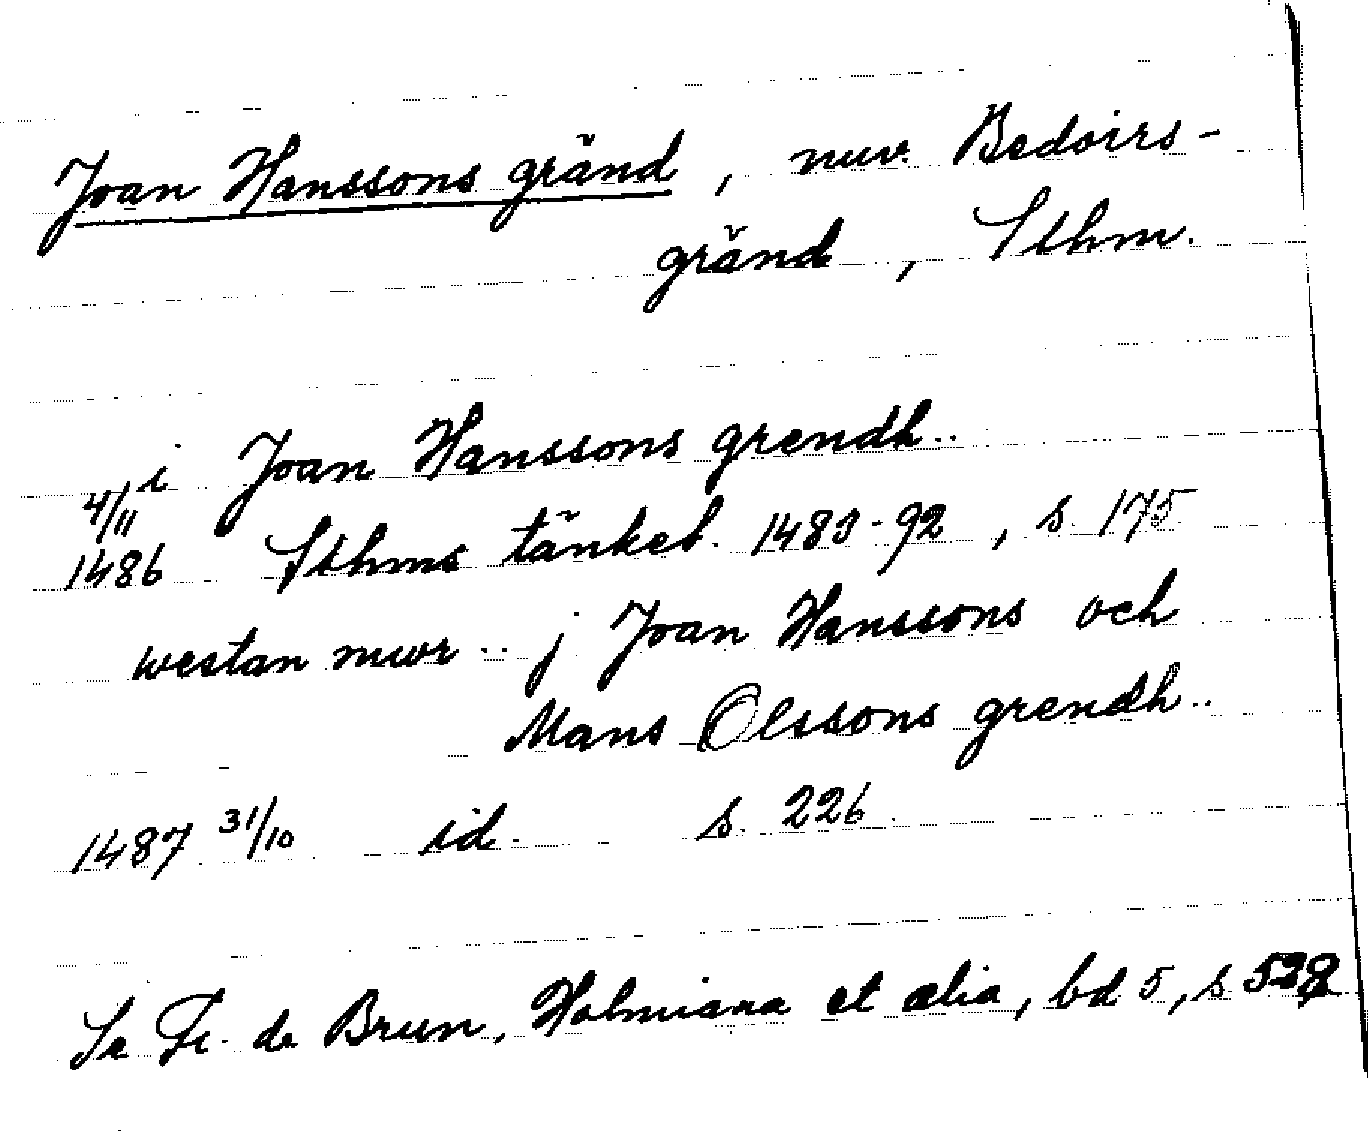 Joan Hanssons gränd, nuv. Bedoirs-
gränd, Sthm.
i Joan Hanssons grendh..
4/11
1486 Sthms tänkeb. 1483-92, s. 175
westan mwr .. j Joan Hanssons och
Mans Olssons grendh..
1487 31/10 id. s. 226
Se Fr. de Brun, Holmiana et alia, bd 5, s